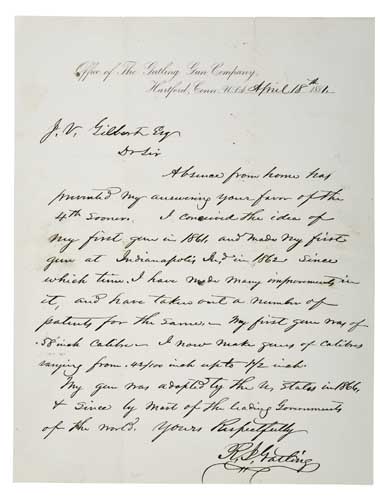 Office of The Gatling Gun Company,
Hartford, Conn. U.S.A. April 18th 18
J. V. Gilbert Esq
Dr Sir
Absence from home has
prevented my answering your favor of the
4th sooner. I conceived the idea of
my first gun in 1861, and made my first
gun at Indianapolis, Ind, in 1862 Since
which time I have made many improvements in
it, and have taken out a number of
patents for the same — My first gun was of
.58 inch Calibre — I now make guns of Calibres
ranging from .42/100 inch up to 1 1/2 inch.
My gun was adopted by the U. States in 1866
& Since by most of the leading Governments
of the world. Yours Respectfully
R. J. Gatling